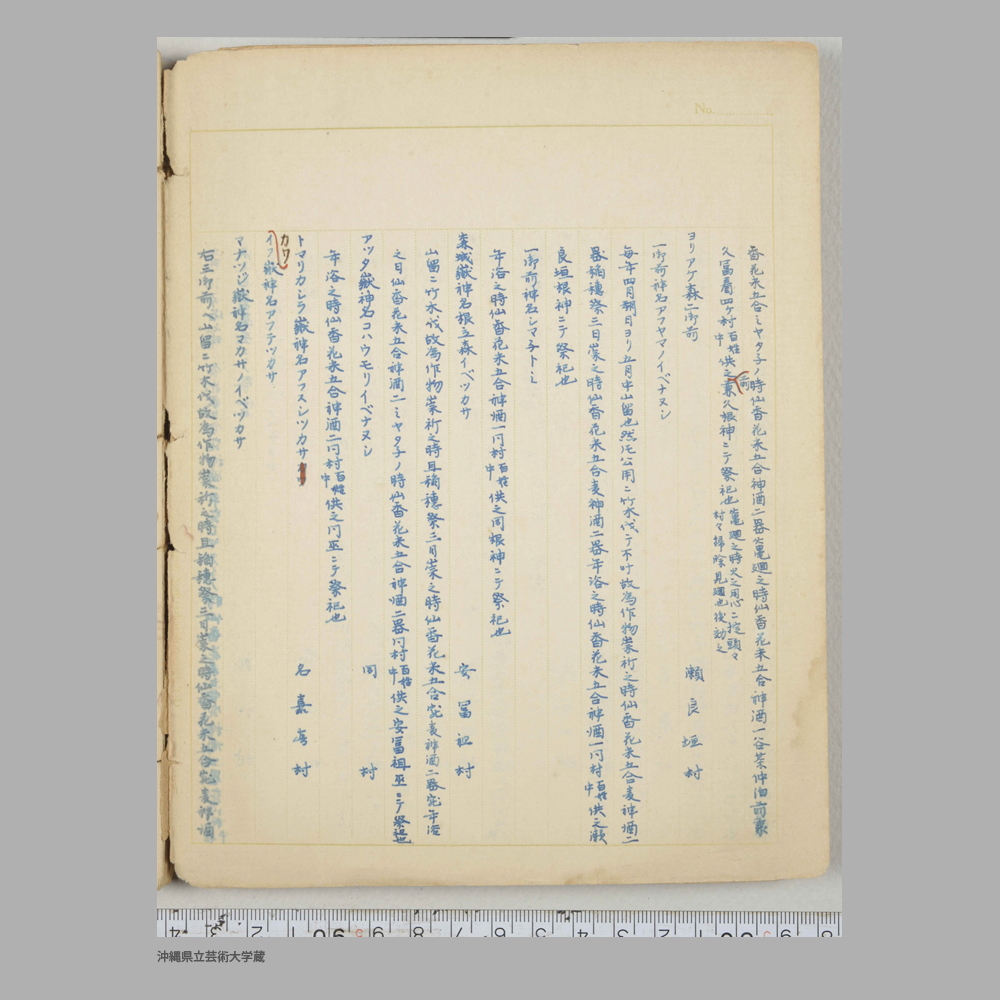 No.
香花米五合ミヤタ子ノ時仙香花米五合神酒二器竈廻之時仙香花米五合神酒一谷茶仲泊前兼
久冨着四ケ村百姓中供之前兼久根神ニテ祭祀也竈廻之時火之用心ニ掟頭々村々掃除見廻也後効之
ヨリアゲ森二御前 瀬良垣村
一御前神名アフヤマノイベナヌシ
毎年四月朔日ヨリ五月中山留也然圧公用ニ竹木伐テ不叶故為作物祟祈之時仙香花米五合麦神酒二
器稲穂祭三日崇之時仙香花米五合麦神酒二器年浴之時仙香花米五合神酒一同村百姓中供之瀬
良垣根神ニテ祭祀也
一御前神名シマ子トミ
年浴之時仙香花米五合神酒一同村百姓中供之同根神ニテ祭祀也
森城嶽神名根立森イベツカサ 安冨祖村
山留ニ竹木伐故為作物祟祈之時且稲穂祭三日崇之時仙香花米五合完麦神酒二器完年浴
之日仙香花米五合神酒二ミヤタ子ノ時仙香花米五合神酒二器同村百姓中供之安冨祖巫ニテ祭祀也
アツタ嶽神名コハウモリイベナヌシ 同村
年浴之時仙香花米五合神酒二同村百姓中供之同巫ニテ祭祀也
トマリカシラ嶽神名アフスシツカサ 名嘉真村
カワ
イフ嶽神名アフテツカサ
マナツジ嶽神名マカサノイベツカサ
右三御前ヘ山留ニ竹木伐故為作物祟祈之時且稲穂祭三日崇之時仙香花米五合完麦神酒
沖縄県立芸術大学蔵